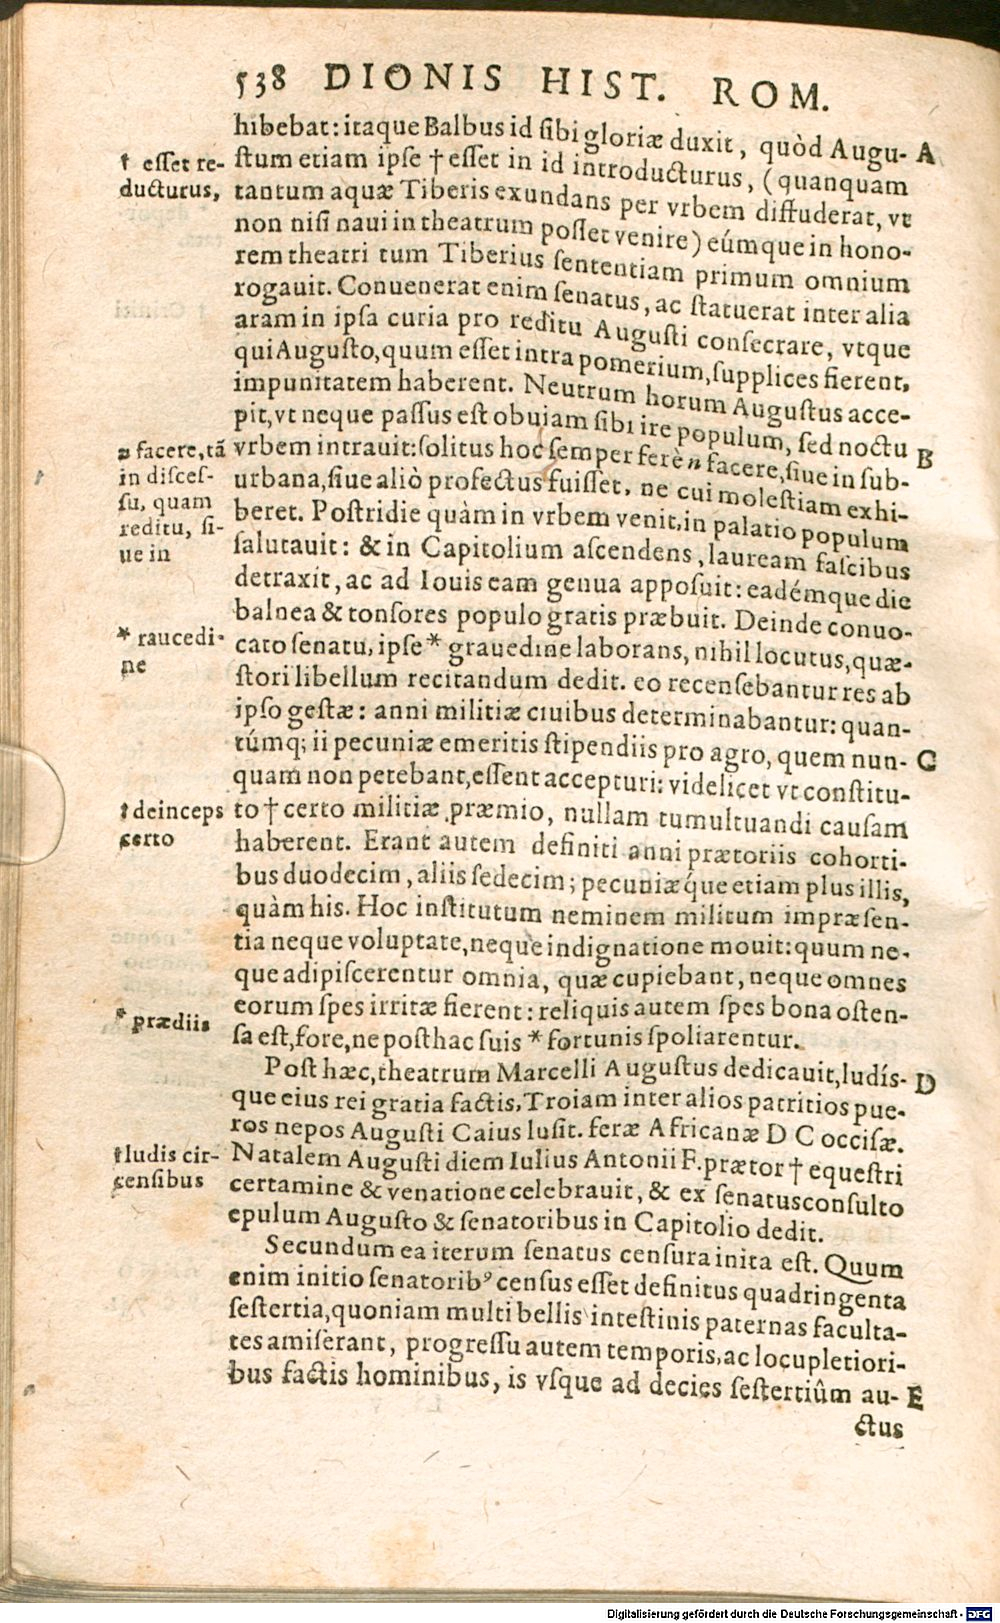 538 DIONIS HIST. ROM.
hibebat: itaque Balbus id ſibi gloriæ duxit, quòd Augu- A
ſtum etiam ipſe † eſſet in id introducturus, (quanquam
tantum aquæ Tiberis exundans per vrbem diffuderat, vt
non niſi naui in theatrum poſſet venire) eúmque in hono-
rem theatri tum Tiberius ſententiam primum omnium
rogauit. Conuenerat enim ſenatus, ac ſtatuerat inter alia
aram in ipſa curia pro reditu Auguſti conſecrare, vtque
qui Auguſto, quum eſſet intra pomerium, ſupplices fierent,
impunitatem haberent. Neutrum horum Auguſtus acce-
pit, vt neque paſſus eſt obuiam ſibi ire populum, ſed noctu
vrbem intrauit: ſolitus hoc ſemper ferè n facere, ſiue in ſub- B
urbana, ſiue aliò profectus fuiſſet, ne cui moleſtiam exhi-
beret. Poſtridie quàm in vrbem venit, in palatio populum
ſalutauit: & in Capitolium aſcendens, lauream faſcibus
detraxit, ac ad Iouis eam genua appoſuit: eadémque die
balnea & tonſores populo gratis præbuit. Deinde conuo-
cato ſenatu, ipſe * grauedine laborans, nihil locutus, quæ-
ſtori libellum recitandum dedit. eo recenſebantur res ab
ipſo geſtæ: anni militiæ ciuibus determinabantur: quan-
túmq; ii pecuniæ emeritis ſtipendiis pro agro, quem nun- C
quam non petebant, eſſent accepturi: videlicet vt conſtitu-
to † certo militiæ præmio, nullam tumultuandi cauſam
haberent. Erant autem definiti anni prætoriis cohorti-
bus duodecim, aliis ſedecim; pecuniǽque etiam plus illis,
quàm his. Hoc inſtitutum neminem militum impræſen-
tia neque voluptate, neque indignatione mouit: quum ne-
que adipiſcerentur omnia, quæ cupiebant, neque omnes
eorum ſpes irritæ fierent: reliquis autem ſpes bona oſten-
ſa eſt, fore, ne poſthac ſuis * fortunis ſpoliarentur.
Poſt hæc, theatrum Marcelli Auguſtus dedicauit, ludíſ- D
que eius rei gratia factis, Troiam inter alios patritios pue-
ros nepos Auguſti Caius luſit. feræ Africanæ D C occiſæ.
Natalem Auguſti diem Iulius Antonii F. prætor † equeſtri
certamine & venatione celebrauit, & ex ſenatusconſulto
epulum Auguſto & ſenatoribus in Capitolio dedit.
Secundum ea iterum ſenatus cenſura inita eſt. Quum
enim initio ſenatorib⁹ cenſus eſſet definitus quadringenta
ſeſtertia, quoniam multi bellis inteſtinis paternas faculta-
tes amiſerant, progreſſu autem temporis, ac locupletiori-
bus factis hominibus, is vſque ad decies ſeſtertiûm au- E
ctus
† eſſet re-
ducturus,
n facere, tã
in diſceſ-
ſu, quam
reditu, ſi-
ue in
* raucedi-
ne
† deinceps
certo
* prædiis
† ludis cir-
cenſibus
Digitalisierung gefördert durch die Deutsche Forschungsgemeinschaft - DFG